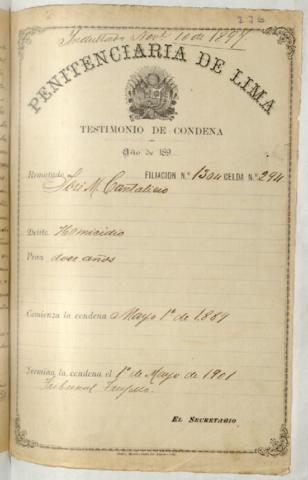 276
Indultado Novb. 10 de 1897
PENITENCIARIA DE LIMA
TESTIMONIO DE CONDENA
Año de 189
Rematado José M. Cantalicio FILIACION N.º 1304 CELDA N.º 294
Delito Homicidio
Pena doce años
Comienza la condena Mayo 1º de 1889
Termina la condena el 1º de Mayo de 1901
Tribunal Trujillo.
EL SECRETARIO